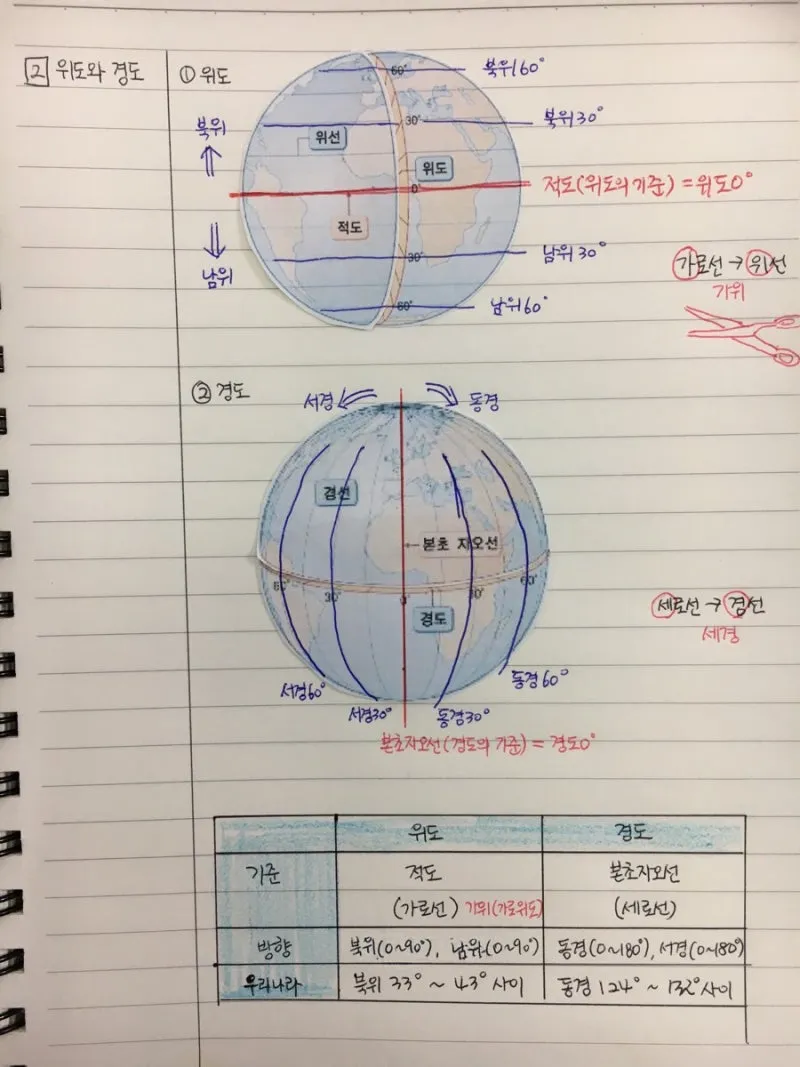 2 위도와 경도
① 위도
북위
남위
60°
북위 60°
30°
북위 30°
위선
위도
0°
적도(위도의 기준) = 위도 0°
적도
30°
남위 30°
60°
남위 60°
가로선 → 위선
가위
② 경도
서경
동경
경선
본초 자오선
60°
30°
0°
30°
60°
경도
세로선 → 경선
세경
서경60°
서경30°
동경30°
동경60°
본초자오선(경도의 기준) = 경도0°
위도 경도
기준 적도 본초자오선
(가로선) 가위(가로위도) (세로선)
방향 북위(0~90°), 남위(0~90°) 동경(0~180°), 서경(0~180°)
우리나라 북위 33° ~ 43° 사이 동경 124° ~ 132° 사이